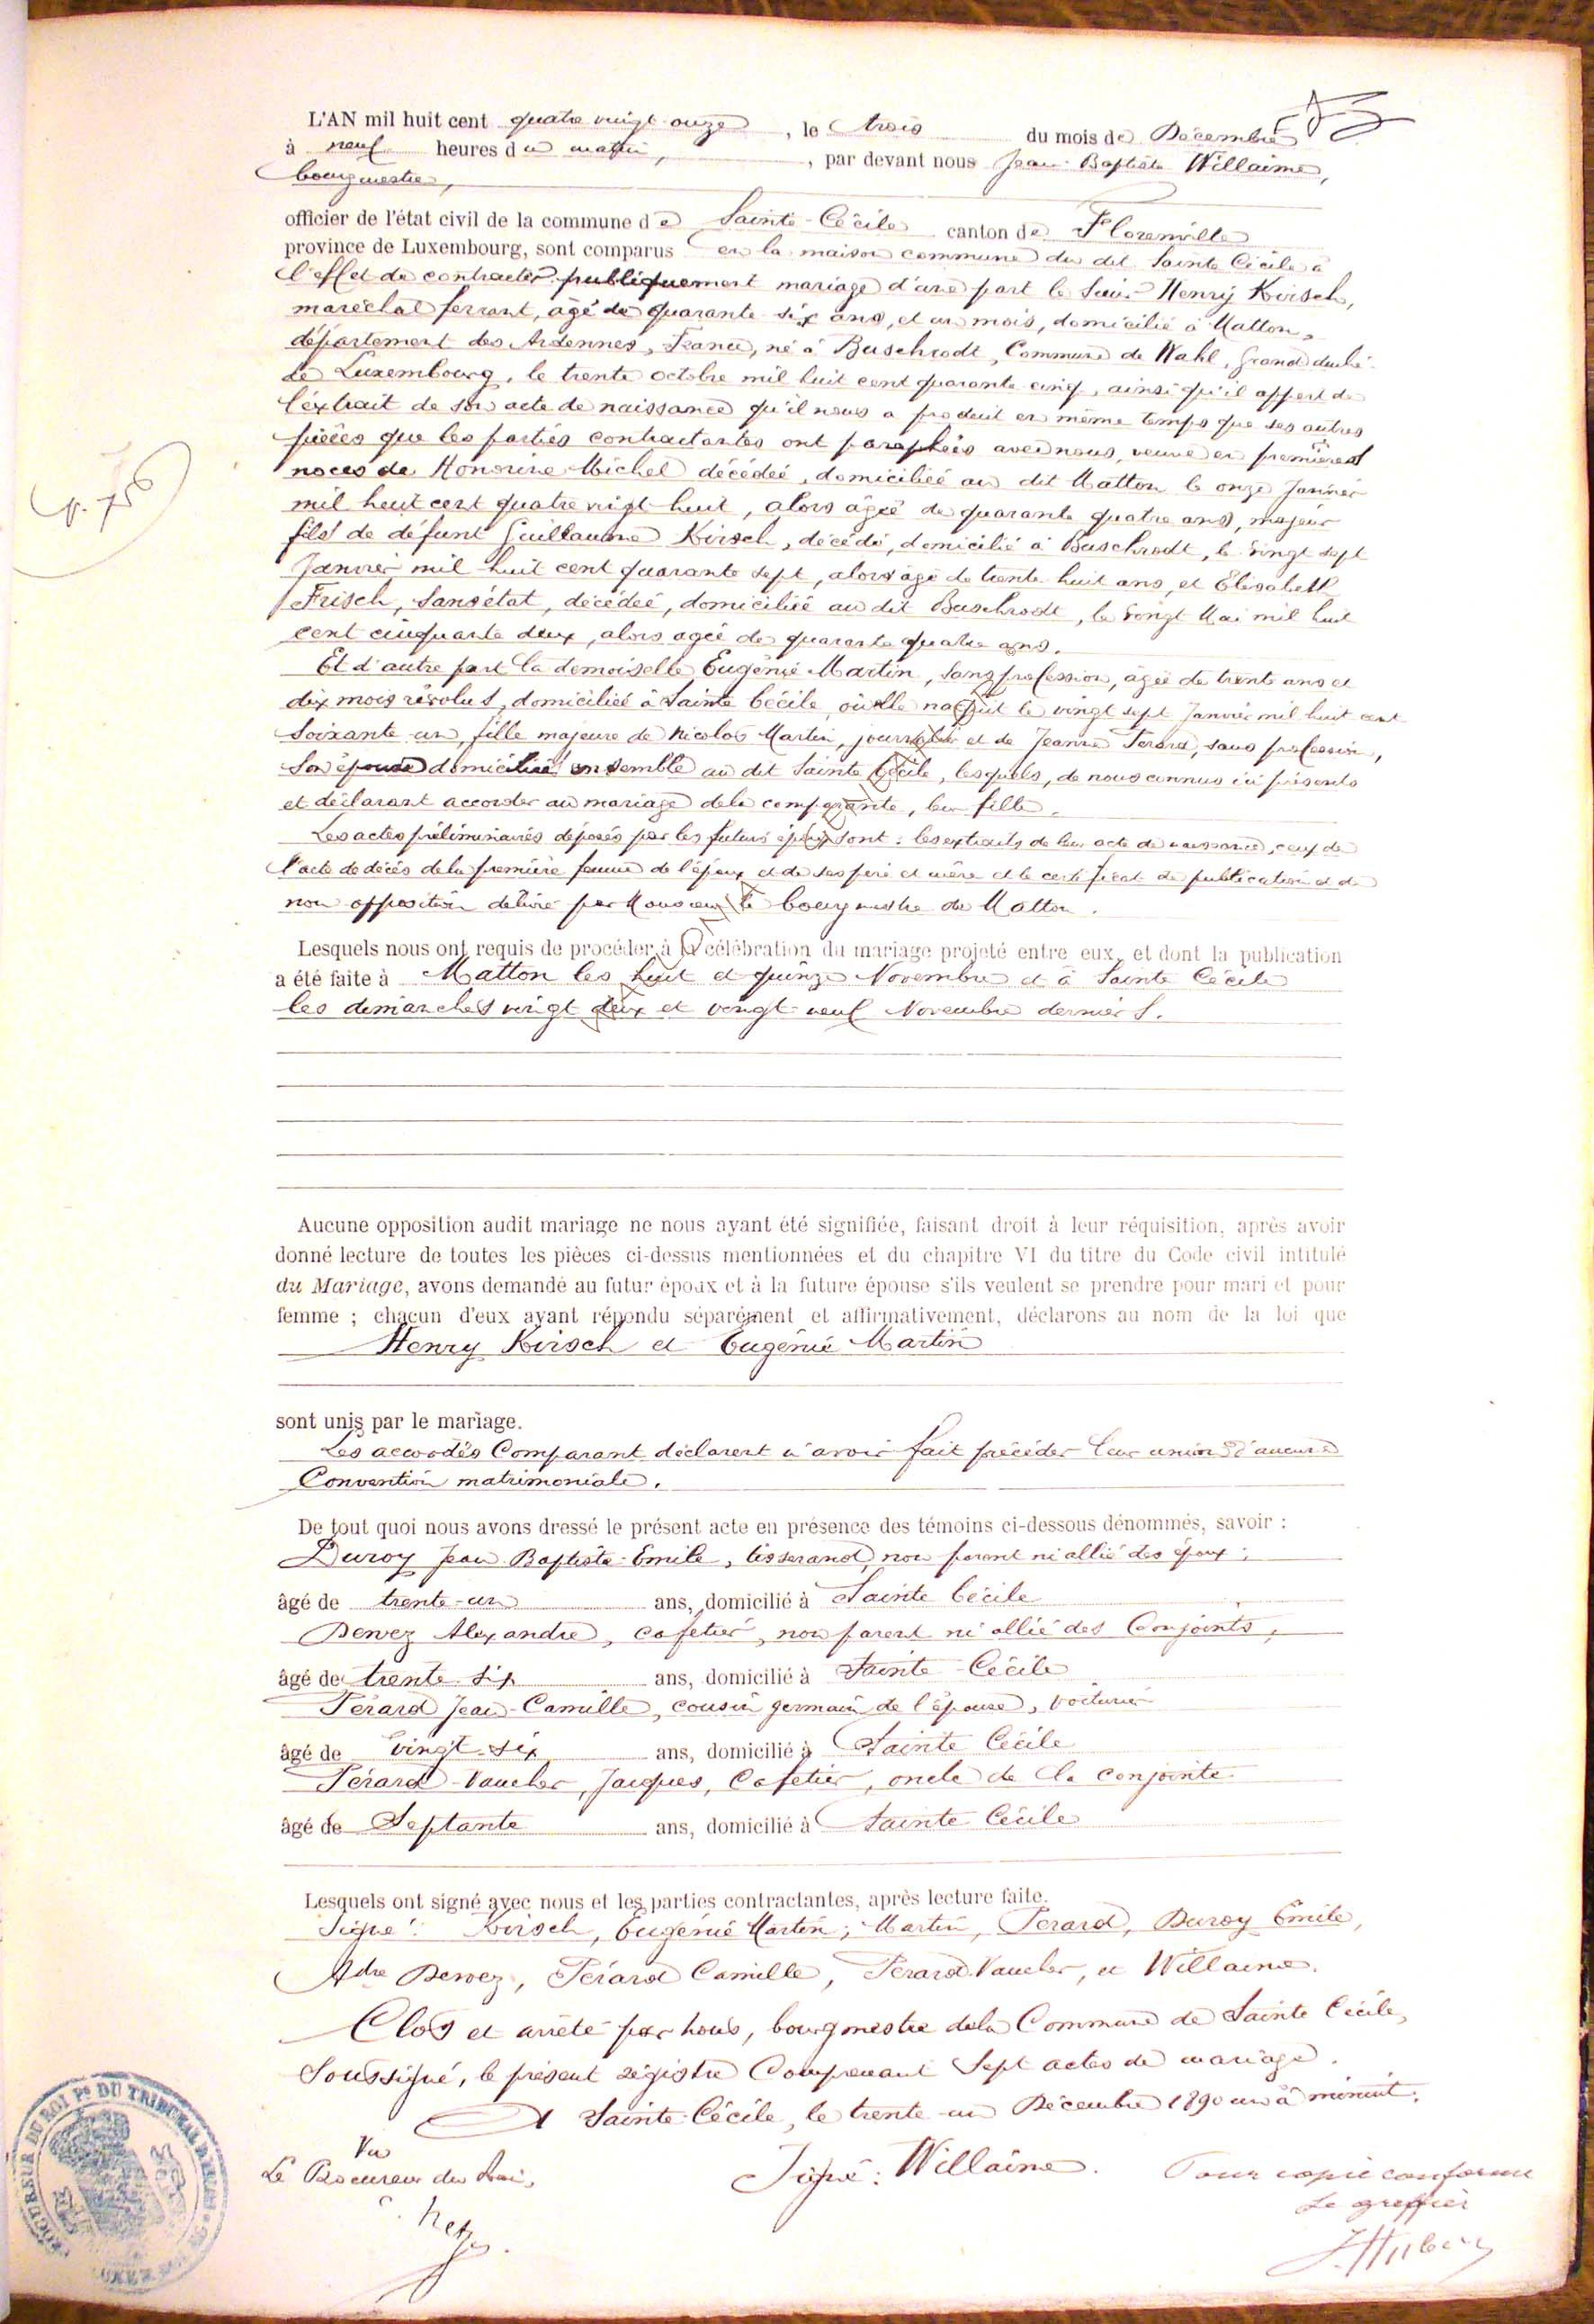 L'AN mil huit cent quatre vingt onze, le trois du mois de Décembre
à neuf heures du matin, par devant nous Jean-Baptiste Willaime,
bourgmestre,
officier de l'état civil de la commune de Sainte-Cécile canton de Florenville
province de Luxembourg, sont comparus en la maison commune du dit Sainte Cécile à
l'effet de contracter publiquement mariage d'une part le Sieur Henry Kirsch,
maréchal ferrant, âgé de quarante six ans, et un mois, domicilié à Matton,
département des Ardennes, France, né à Buschrodt, Commune de Wahl, Grand duché
de Luxembourg, le trente octobre mil huit cent quarante cinq, ainsi qu'il appert de
l'extrait de son acte de naissance qu'il nous a produit en même temps que ses autres
pièces que les parties contractantes ont paraphées avec nous, veuve en premières
noces de Honorine Michel décédée, domiciliée au dit Matton le onze Janvier
mil huit cent quatre vingt huit, alors âgée de quarante quatre ans, majeur
fils de défunt Guillaume Kirsch, décédé, domicilié à Buschrodt, le vingt sept
Janvier mil huit cent quarante sept, alors âgé de trente huit ans, et Elisabeth
Frisch, sans état, décédée, domiciliée au dit Buschrodt, le vingt Mai mil huit
cent cinquante deux, alors agée de quarante quatre ans.
Et d'autre part la demoiselle Eugénie Martin, sans profession, âgée de trente ans et
dix mois révolus, domiciliée à Sainte Cécile, où elle naquit le vingt sept Janvier mil huit cent
soixante un, fille majeure de Nicolas Martin, journalier et de Jeanne Perard, sans profession,
son épouse domiciliés ensemble au dit Sainte Cécile, lesquels, de nous connus ici présents
et déclarant accorder au mariage de la comparante, leur fille.
Les actes préliminaires déposés par les futurs époux sont : les extraits de leur acte de naissance, ceux de
l'acte de décès de la première femme de l'époux et de ses père et mère et le certificat de publication et de
non opposition délivré par Monsieur le bourgmestre de Matton.
Lesquels nous ont requis de procéder à la célébration du mariage projeté entre eux, et dont la publication
a été faite à Matton les huit et quinze Novembre et à Sainte Cécile
les dimanches vingt deux et vingt-neuf Novembre derniers.
Aucune opposition audit mariage ne nous ayant été signifiée, faisant droit à leur réquisition, après avoir
donné lecture de toutes les pièces ci-dessus mentionnées et du chapitre VI du titre du Code civil intitulé
du Mariage, avons demandé au futur époux et à la future épouse s'ils veulent se prendre pour mari et pour
femme ; chacun d'eux ayant répondu séparément et affirmativement, déclarons au nom de la loi que
Henry Kirsch et Eugénie Martin
sont unis par le mariage.
Les accordés Comparant déclarent n'avoir fait précéder leur union d'aucune
Convention matrimoniale.
De tout quoi nous avons dressé le présent acte en présence des témoins ci-dessous dénommés, savoir :
Duroy Jean-Baptiste-Emile, tisserand, non parent ni allié des époux,
âgé de trente-un ans, domicilié à Sainte Cécile
Dewez Alexandre, cafetier, non parent ni allié des Conjoints,
âgé de trente-six ans, domicilié à Sainte-Cécile
Pérard Jean-Camille, cousin germain de l'épouse, voiturier
âgé de vingt-six ans, domicilié à Sainte Cécile
Pérard-Vaucler, Jacques, Cafetier, oncle de la conjointe
âgé de Septante ans, domicilié à Sainte Cécile
Lesquels ont signé avec nous et les parties contractantes, après lecture faite.
Signé : Kirsch, Eugénie Martin ; Martin, Perard, Duroy Emile,
Adre Dewez, Pérard Camille, Perard-Vaucler, et Willaime.
Clos et arrêté par nous, bourgmestre de la Commune de Sainte Cécile,
Soussigné, le présent régistre Comprenant Sept actes de mariage.
A Sainte-Cécile, le trente-un Décembre 1890 un à minuit.
Vu
Le Procureur du Roi,
Signé : Willaime.
Pour copie conforme
Le greffier
PROCUREUR DU ROI Pr DU TRIBUNAL